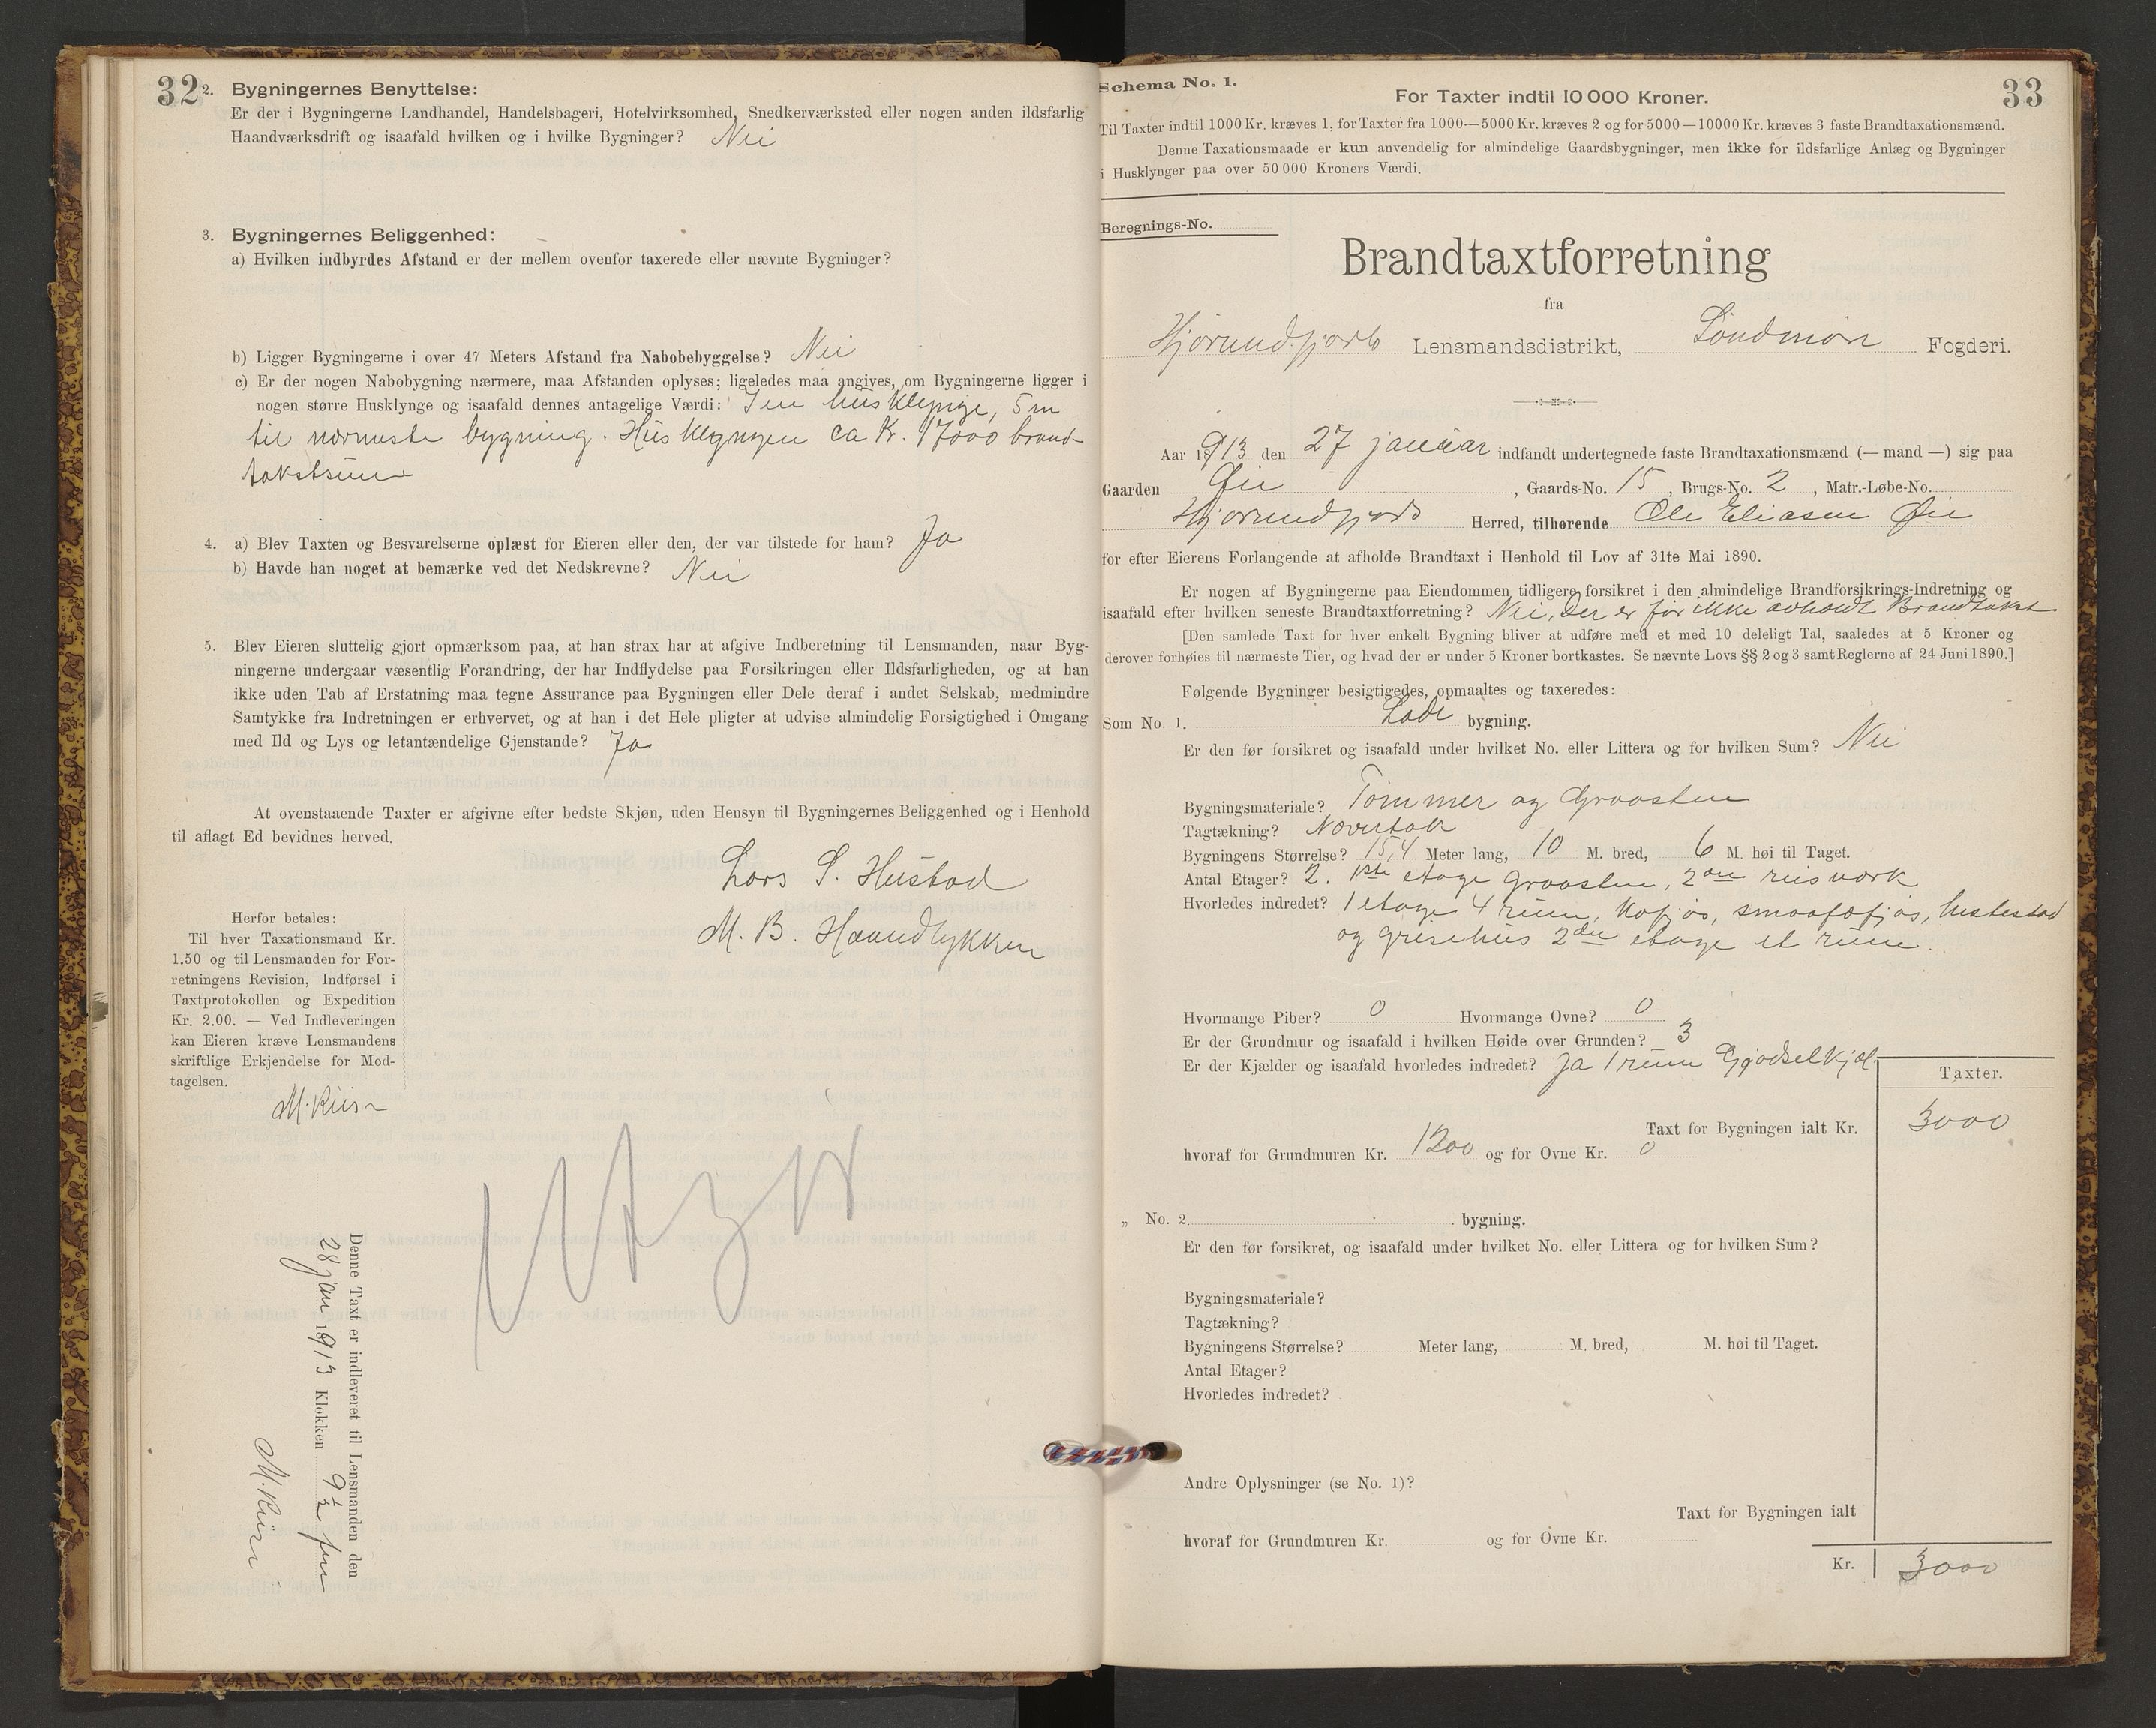 32
2. Bygningernes Benyttelse:
Er der i Bygningerne Landhandel, Handelsbageri, Hotelvirksomhed, Snedkerværksted eller nogen anden ildsfarlig
Haandværksdrift og isaafald hvilken og i hvilke Bygninger? Nei
3. Bygningernes Beliggenhed:
a) Hvilken indbyrdes Afstand er der mellem ovenfor taxerede eller nævnte Bygninger?
b) Ligger Bygningerne i over 47 Meters Afstand fra Nabobebyggelse? Nei
c) Er der nogen Nabobygning nærmere, maa Afstanden oplyses; ligeledes maa angives, om Bygningerne ligger i
nogen større Husklynge og isaafald dennes antagelige Værdi: I en husklynge, 5 m
til nærmeste bygning. Husklyngen ca Kr. 17000 brand-
takstsum
4. a) Blev Taxten og Besvarelserne oplæst for Eieren eller den, der var tilstede for ham? Ja
b) Havde han noget at bemærke ved det Nedskrevne? Nei
5. Blev Eieren sluttelig gjort opmærksom paa, at han strax har at afgive Indberetning til Lensmanden, naar Byg-
ningerne undergaar væsentlig Forandring, der har Indflydelse paa Forsikringen eller Ildsfarligheden, og at han
ikke uden Tab af Erstatning maa tegne Assurance paa Bygningen eller Dele deraf i andet Selskab, medmindre
Samtykke fra Indretningen er erhvervet, og at han i det Hele pligter at udvise almindelig Forsigtighed i Omgang
med Ild og Lys og letantændelige Gjenstande? Ja
At ovenstaaende Taxter er afgivne efter bedste Skjøn, uden Hensyn til Bygningernes Beliggenhed og i Henhold
til aflagt Ed bevidnes herved.
Lars S. Hustad
M. B. Haandlykken
Herfor betales:
Til hver Taxationsmand Kr.
1.50 og til Lensmanden for For-
retningens Revision, Indførsel i
Taxtprotokollen og Expedition
Kr. 2.00. — Ved Indleveringen
kan Eieren kræve Lensmandens
skriftlige Erkjendelse for Mod-
tagelsen.
M. Riise
Denne Taxt er indleveret til Lensmanden den
28 jan 1913 Klokken 9 ½ fm
M. Riise
Schema No. 1.
33
For Taxter indtil 10 000 Kroner.
Til Taxter indtil 1000 Kr. kræves 1, for Taxter fra 1000—5000 Kr. kræves 2 og for 5000—10000 Kr. kræves 3 faste Brandtaxationsmænd.
Denne Taxationsmaade er kun anvendelig for almindelige Gaardsbygninger, men ikke for ildsfarlige Anlæg og Bygninger
i Husklynger paa over 50 000 Kroners Værdi.
Beregnings-No.
Brandtaxtforretning
fra
Hjørundfjord Lensmandsdistrikt, Søndmør Fogderi.
Aar 1913 den 27 januar indfandt undertegnede faste Brandtaxationsmænd (— mand —) sig paa
Gaarden Øie, Gaards-No. 15, Brugs-No. 2, Matr.-Løbe-No.
Hjørundfjord Herred, tilhørende Ole Eliasen Øie
for efter Eierens Forlangende at afholde Brandtaxt i Henhold til Lov af 31te Mai 1890.
Er nogen af Bygningerne paa Eiendommen tidligere forsikret i den almindelige Brandforsikrings-Indretning og
isaafald efter hvilken seneste Brandtaxtforretning? Nei, der er før ikke avholdt Brandtakst
[Den samlede Taxt for hver enkelt Bygning bliver at udføre med et med 10 deleligt Tal, saaledes at 5 Kroner og
derover forhøies til nærmeste Tier, og hvad der er under 5 Kroner bortkastes. Se nævnte Lovs §§ 2 og 3 samt Reglerne af 24 Juni 1890.]
Følgende Bygninger besigtigedes, opmaaltes og taxeredes:
Som No. 1. Lade bygning.
Er den før forsikret og isaafald under hvilket No. eller Littera og for hvilken Sum? Nei
Bygningsmateriale? Tømmer og Graasten
Tagtækning? Nævertak
Bygningens Størrelse? 15,4 Meter lang, 10 M. bred, 6 M. høi til Taget.
Antal Etager? 2. 1ste etage graasten, 2den reisværk
Hvorledes indredet? 1 etage 4 rum, kofjøs, smaafæfjøs, hestestad
og grisehus 2den etage et rum.
Hvormange Piber? 0 Hvormange Ovne? 0
Er der Grundmur og isaafald i hvilken Høide over Grunden? 3
Er der Kjælder og isaafald hvorledes indredet? Ja 1 rum Gjødselkjæl.
Taxter.
Taxt for Bygningen ialt Kr. 3000
hvoraf for Grundmuren Kr. 1200 og for Ovne Kr. 0
„ No. 2 bygning.
Er den før forsikret, og isaafald under hvilket No. eller Littera og for hvilken Sum?
Bygningsmateriale?
Tagtækning?
Bygningens Størrelse? Meter lang, M. bred, M. høi til Taget.
Antal Etager?
Hvorledes indredet?
Andre Oplysninger (se No. 1)?
Taxt for Bygningen ialt
hvoraf for Grundmuren Kr. og for Ovne Kr.
Kr. 3000